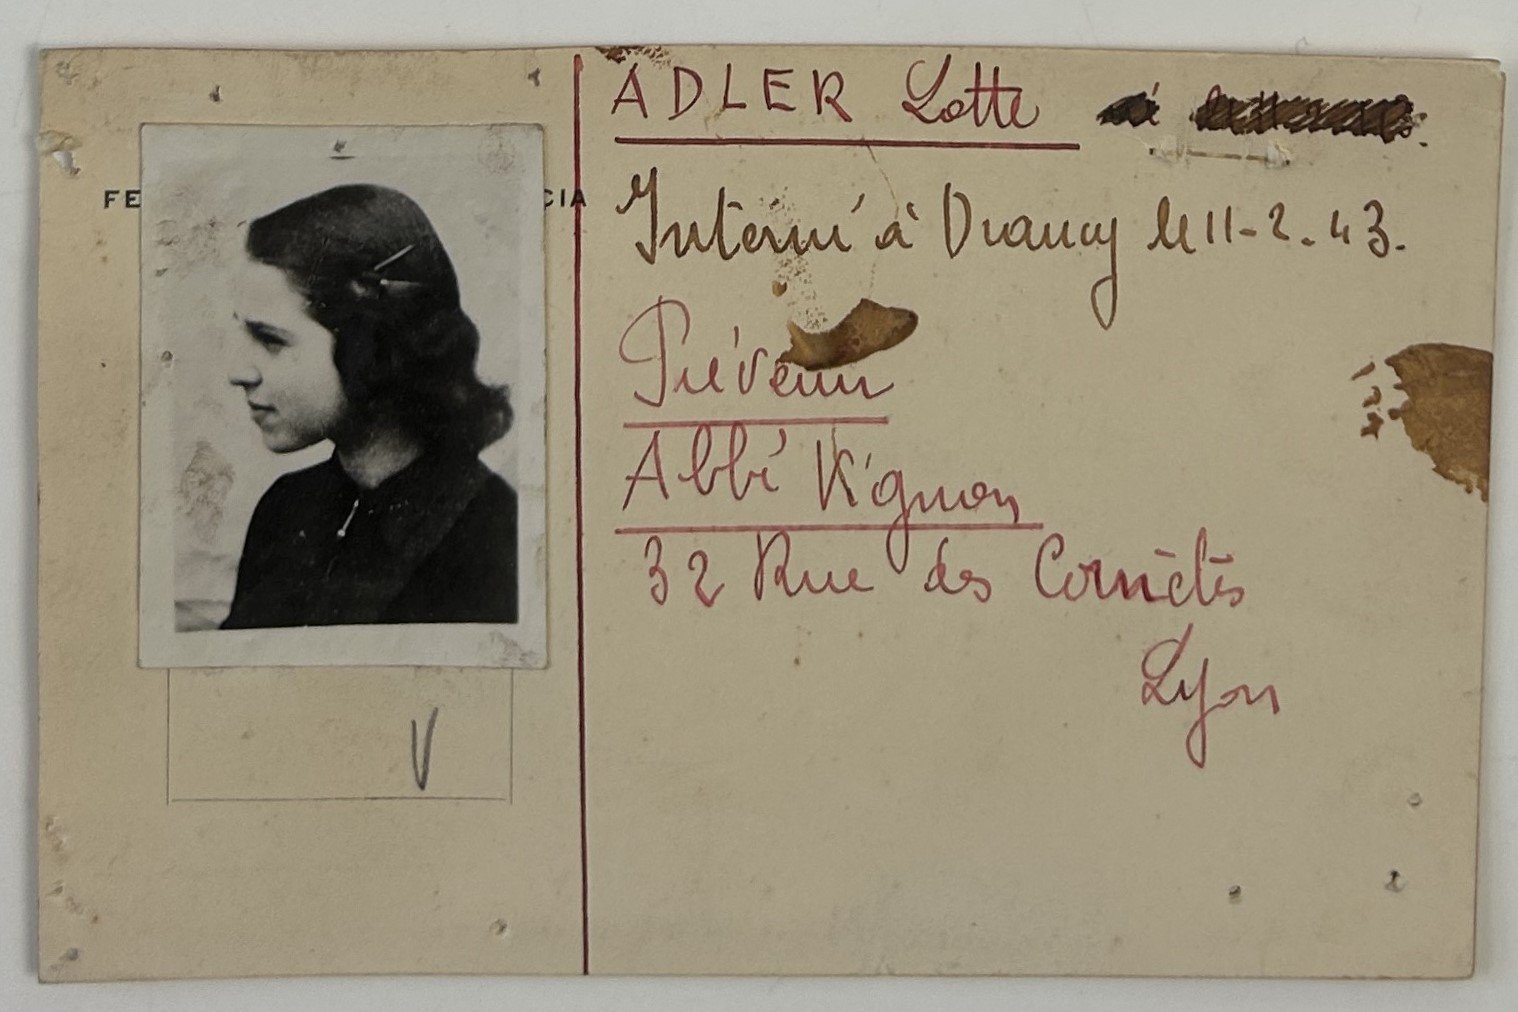 ADLER Lotte né
Interné à Drancy le 11-2.43.
Prévenir
Abbé Vignon
32 Rue des
Lyon
FE CIA
V